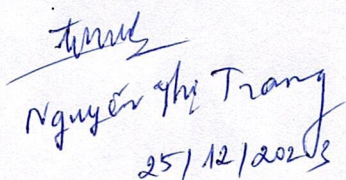 Nguyễn Thị Trang
25/12/2023